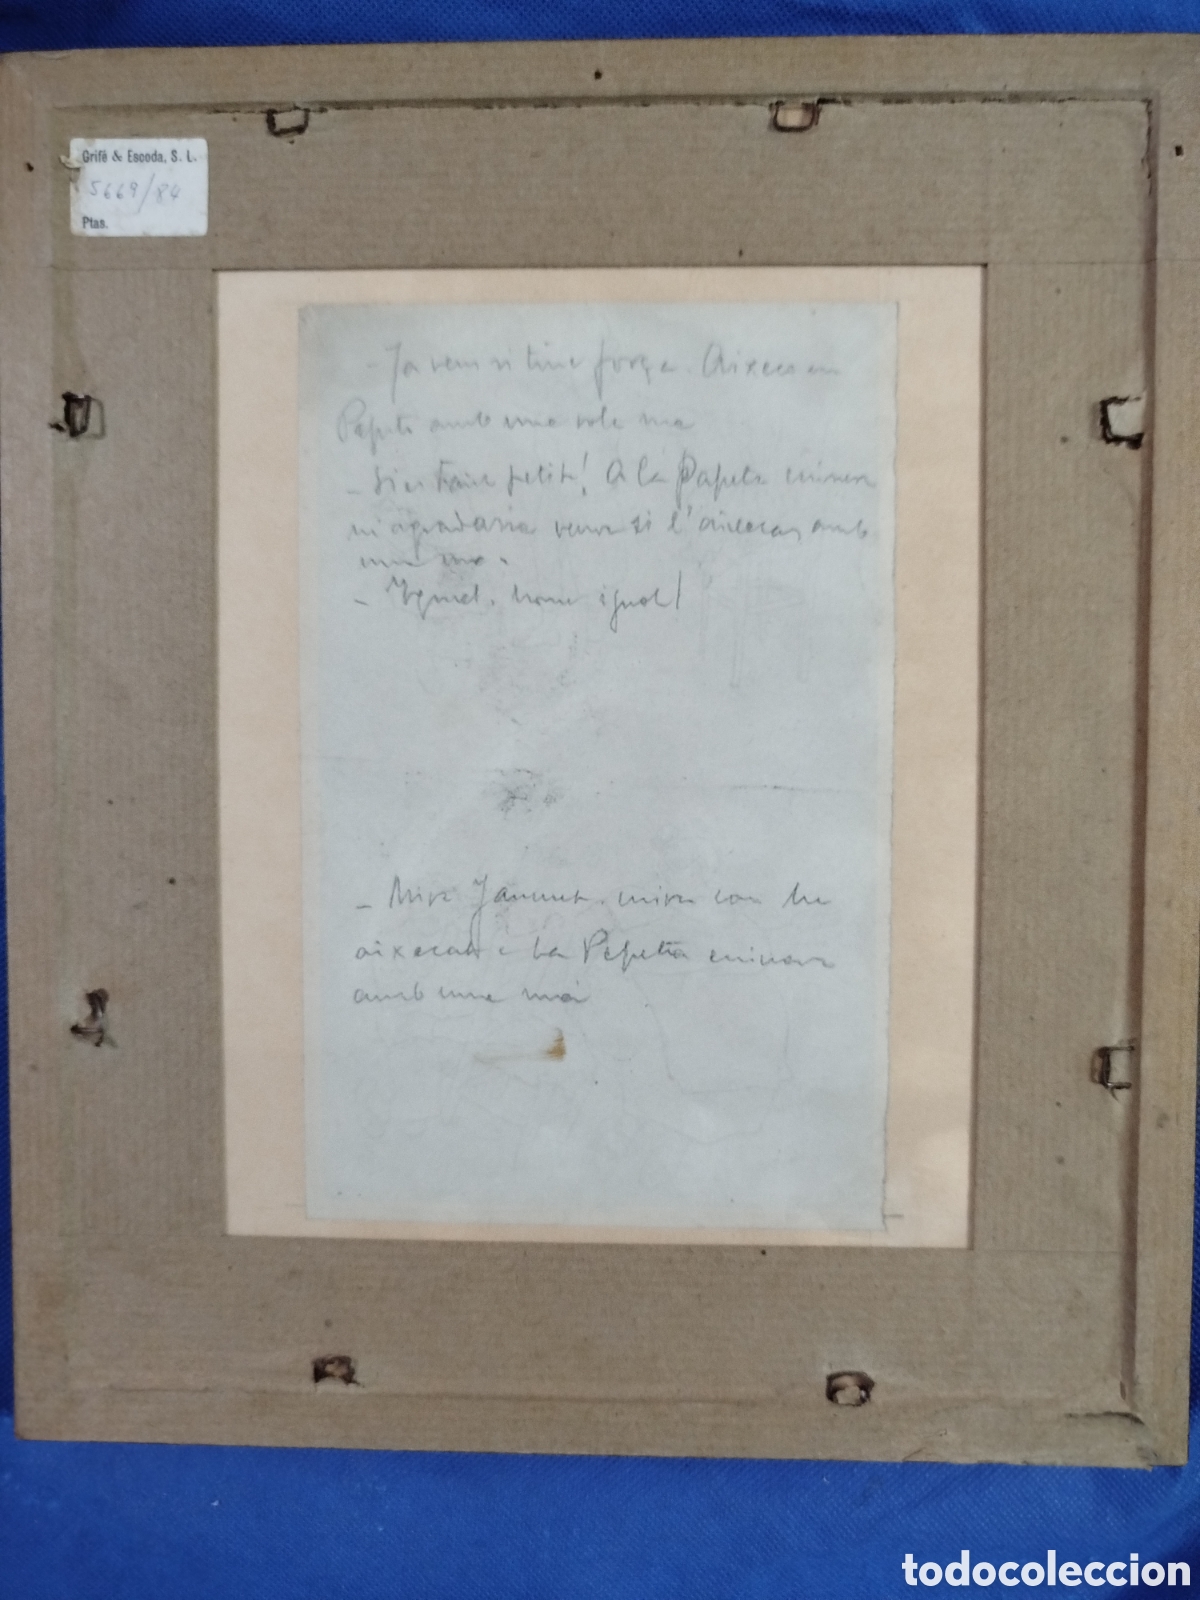 Grifé & Escoda, S. L.
5669/84
Ptas.
- Ja vem si tine força. Aixecs en
Pepito amb una sola ma
- Si es petit! A la Papeta
m'agradaria veure si l'aixecas amb
una ma.
- Igual, home igual!
- Mira Jaumet, mira com he
aixecat a la Pepeta
amb una mà
todocoleccion